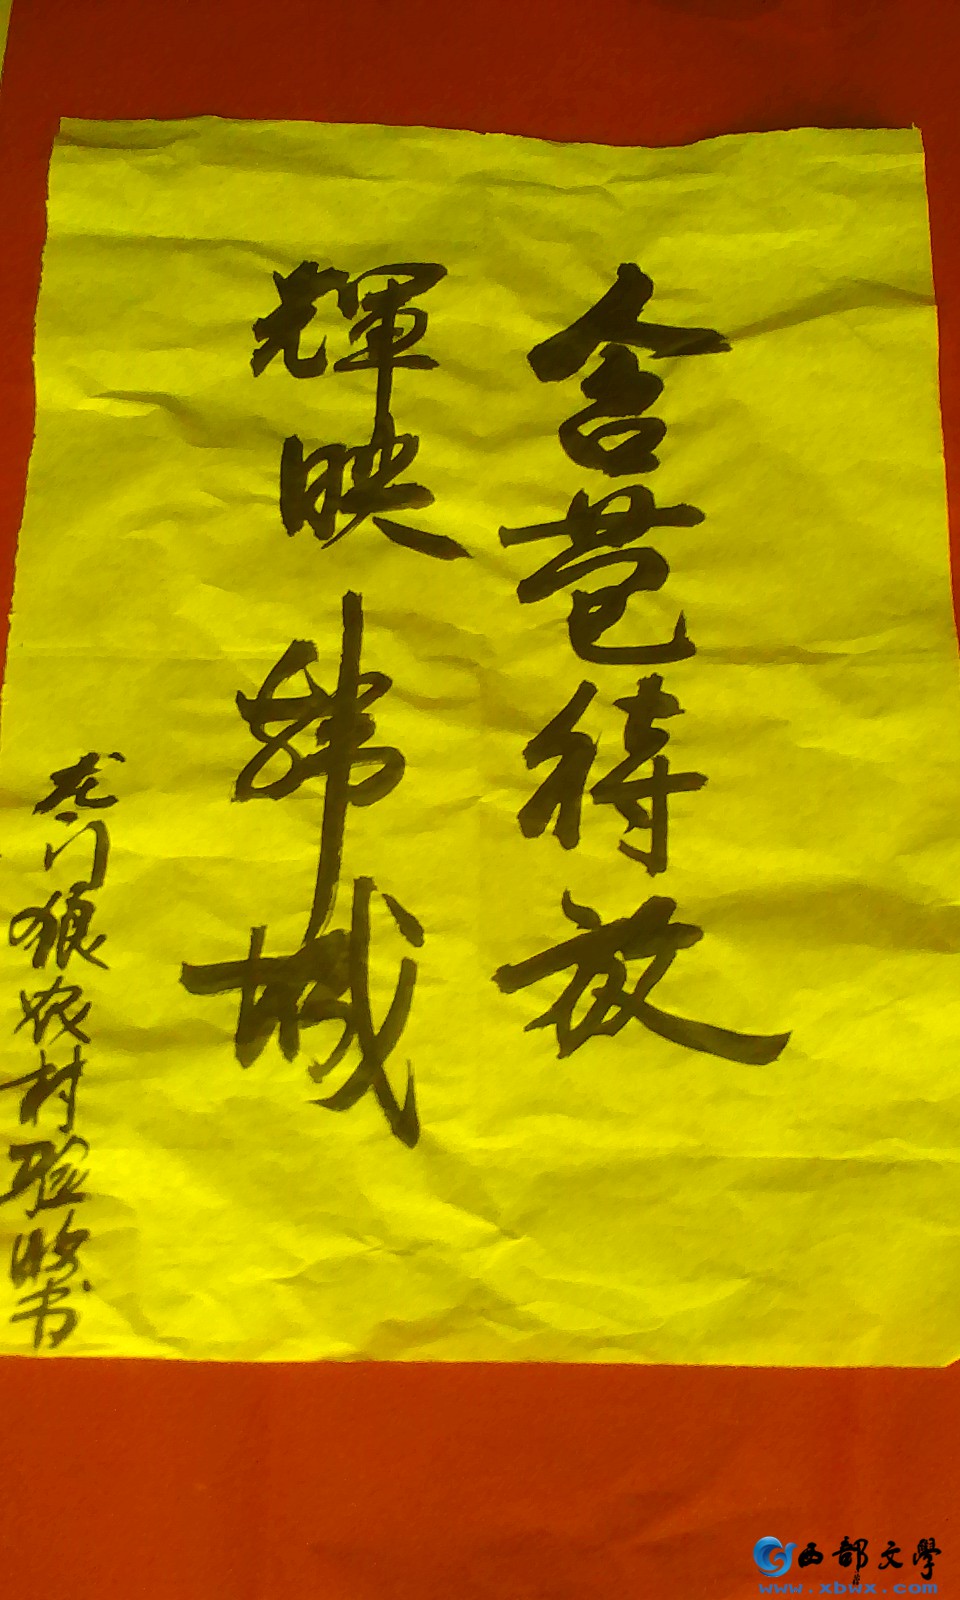 含苞待放
輝映韩城
龙门狼农村验收书
西部文學
www.xbwx.com